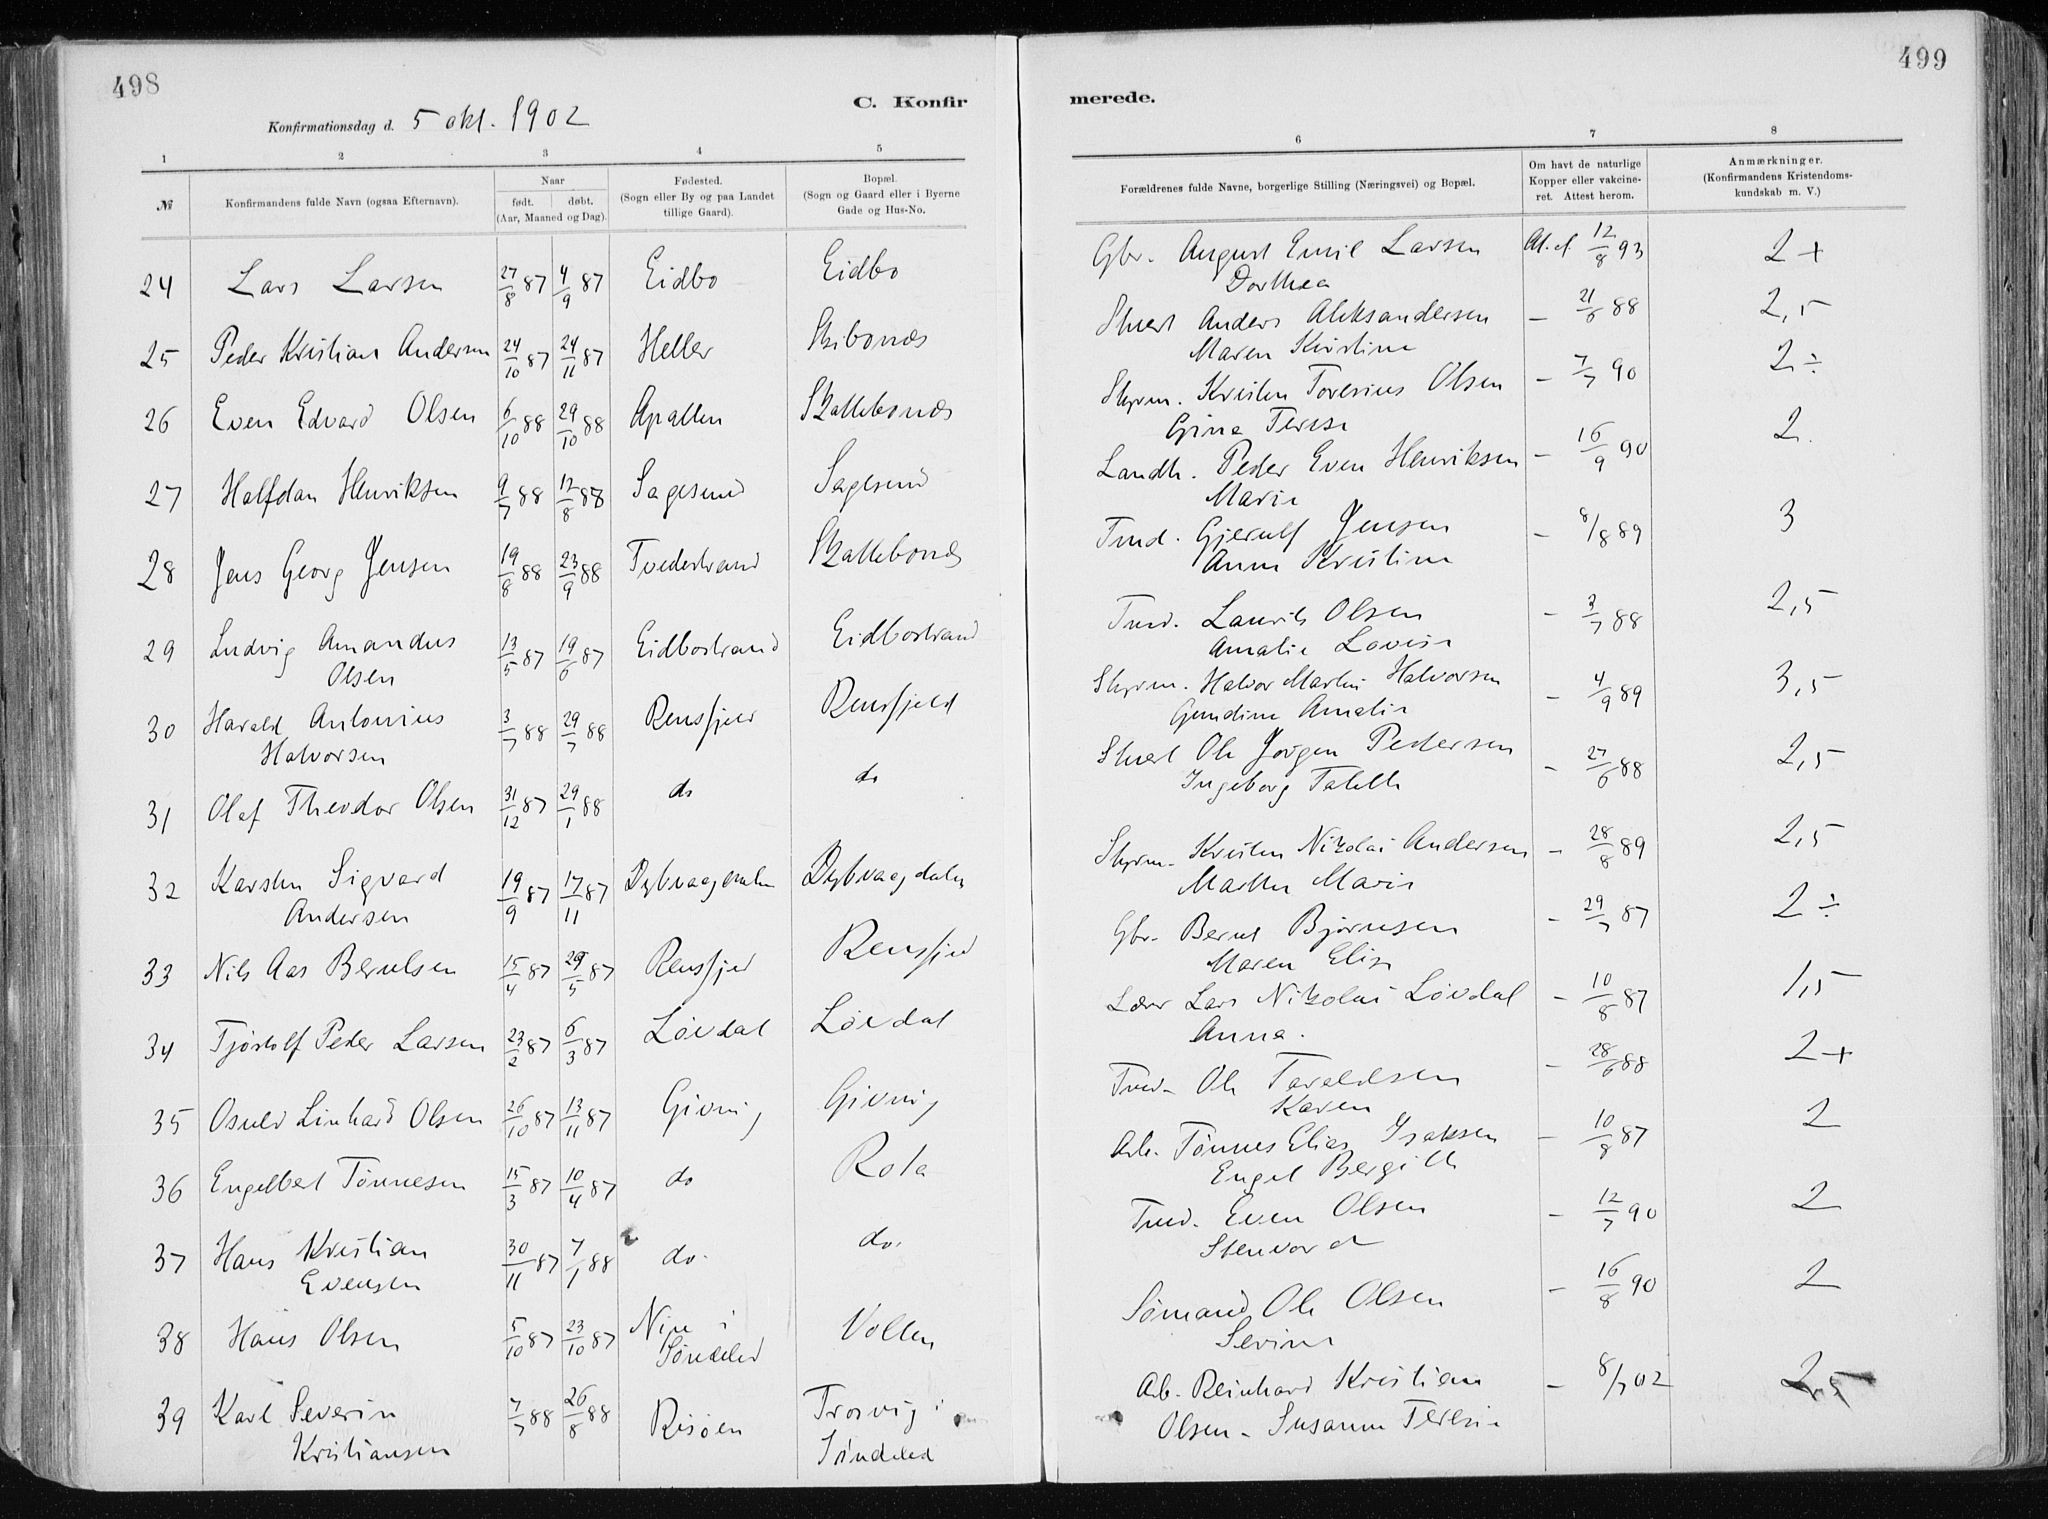 498
499
C. Konfir
merede.
Konfirmationsdag d. 5 okt. 1902
1 2 3 4 5 6 7 8
№
Konfirmandens fulde Navn (ogsaa Efternavn).
Naar
født. døbt.
(Aar, Maaned og Dag).
Fødested.
(Sogn eller By og paa Landet
tillige Gaard).
Bopæl.
(Sogn og Gaard eller i Byerne
Gade og Hus-No.
Forældrenes fulde Navne, borgerlige Stilling (Næringsvei) og Bopæl.
Om havt de naturlige
Kopper eller vakcine-
ret. Attest herom.
Anmærkninger.
(Konfirmandens Kristendoms-
kundskab m. V.)
24 Lars Larsen 27/8 87 4/9 87 Eidbo Eidbo Gbr. August Emil Larsen At. af 12/8 93 2+
Dorthea
25 Peder Kristian Andersen 24/10 87 24/11 87 Heller Skibonæs Anders Aleksandersen – 21/6 88 2,5
Maren Kristine
26 Even Edvard Olsen 6/10 88 29/10 88 Apallen Skattebonæs Styrm. Kristen Toresius Olsen – 7/7 90 2÷
Gina Terese
27 Halfdan Henriksen 9/7 88 12/8 88 Sagesund Sagesund Landh. Peder Even Henriksen – 16/9 90 2.
Marie
28 Jens Georg Jensen 19/8 88 23/9 88 Tvedestrand Skattebonæs Tmd. Gjerulf Jensen – 8/8 89 3
Anne Kristine
29 Ludvig Amandus 13/5 87 19/6 87 Eidbostrand Eidbostrand Tmd. Laurits Olsen – 3/7 88 2,5
Olsen Amalie Lovise
30 Harald Antonius 3/7 88 29/7 88 Rensfjeld Rensfjeld Styrm. Halvor Martin Halvorsen – 4/9 89 3,5
Halvorsen Gundine Amalie
31 Olaf Theodor Olsen 31/12 87 29/1 88 do do Ole Jørgen Pedersen – 27/6 88 2,5
Ingeborg Taleth
32 Karsten Sigvard 19/9 87 17/11 87 Dybvaagdalen Dybvaagdalen Styrm. Kristen Nikolai Andersen – 28/8 89 2,5
Andersen Marthe Marie
33 Nils Aas Berntsen 15/4 87 29/5 87 Rensfjed Rensfjed Gbr. Bernt Bjørnsen – 29/7 87 2÷
Maren Elise
34 Tjøstolf Peder Larsen 23/2 87 6/3 87 Løvdal Løvdal Lærer Lars Nikolai Løvdal – 10/8 87 1,5
Anna.
35 Osuld Linhard Olsen 26/10 87 13/11 87 Givning Givning Tmd. Ole Taraldsen – 28/6 88 2+
Karen
36 Engelbert Tønnesen 15/3 87 10/4 87 do Rota Arb. Tønnes Elias Isaksen – 10/8 87 2
Engel Bergith
37 Hans Kristian 30/11 87 7/1 88 do. do. Tmd. Even Olsen – 12/7 90 2
Evensen
38 Hans Olsen 5/10 87 23/10 87 Nipe i Vollen Sømand Ole Olsen – 16/8 90 2
Søndeled Sevine
39 Karl Severin 7/7 88 26/8 88 Risøen Trosvig i Arb. Reinhard Kristian – 8/7 02 2,5
Kristiansen Søndeled Olsen – Susanne Teresie